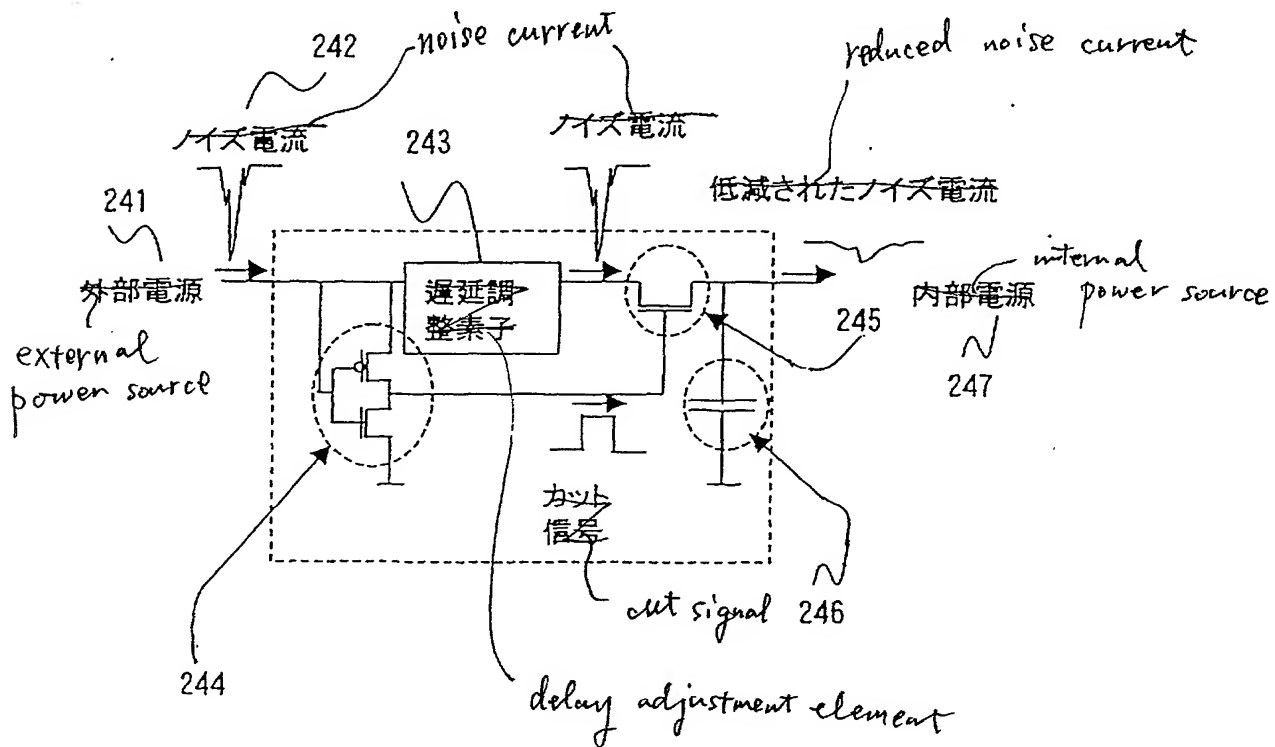 242
noise current
reduced noise current
ノイズ電流
ノイズ電流
243
低減されたノイズ電流
241
外部電源
external
power source
遅延調
整素子
245
内部電源
internal
power source
247
カット
信号
cut signal
246
244
delay adjustment element